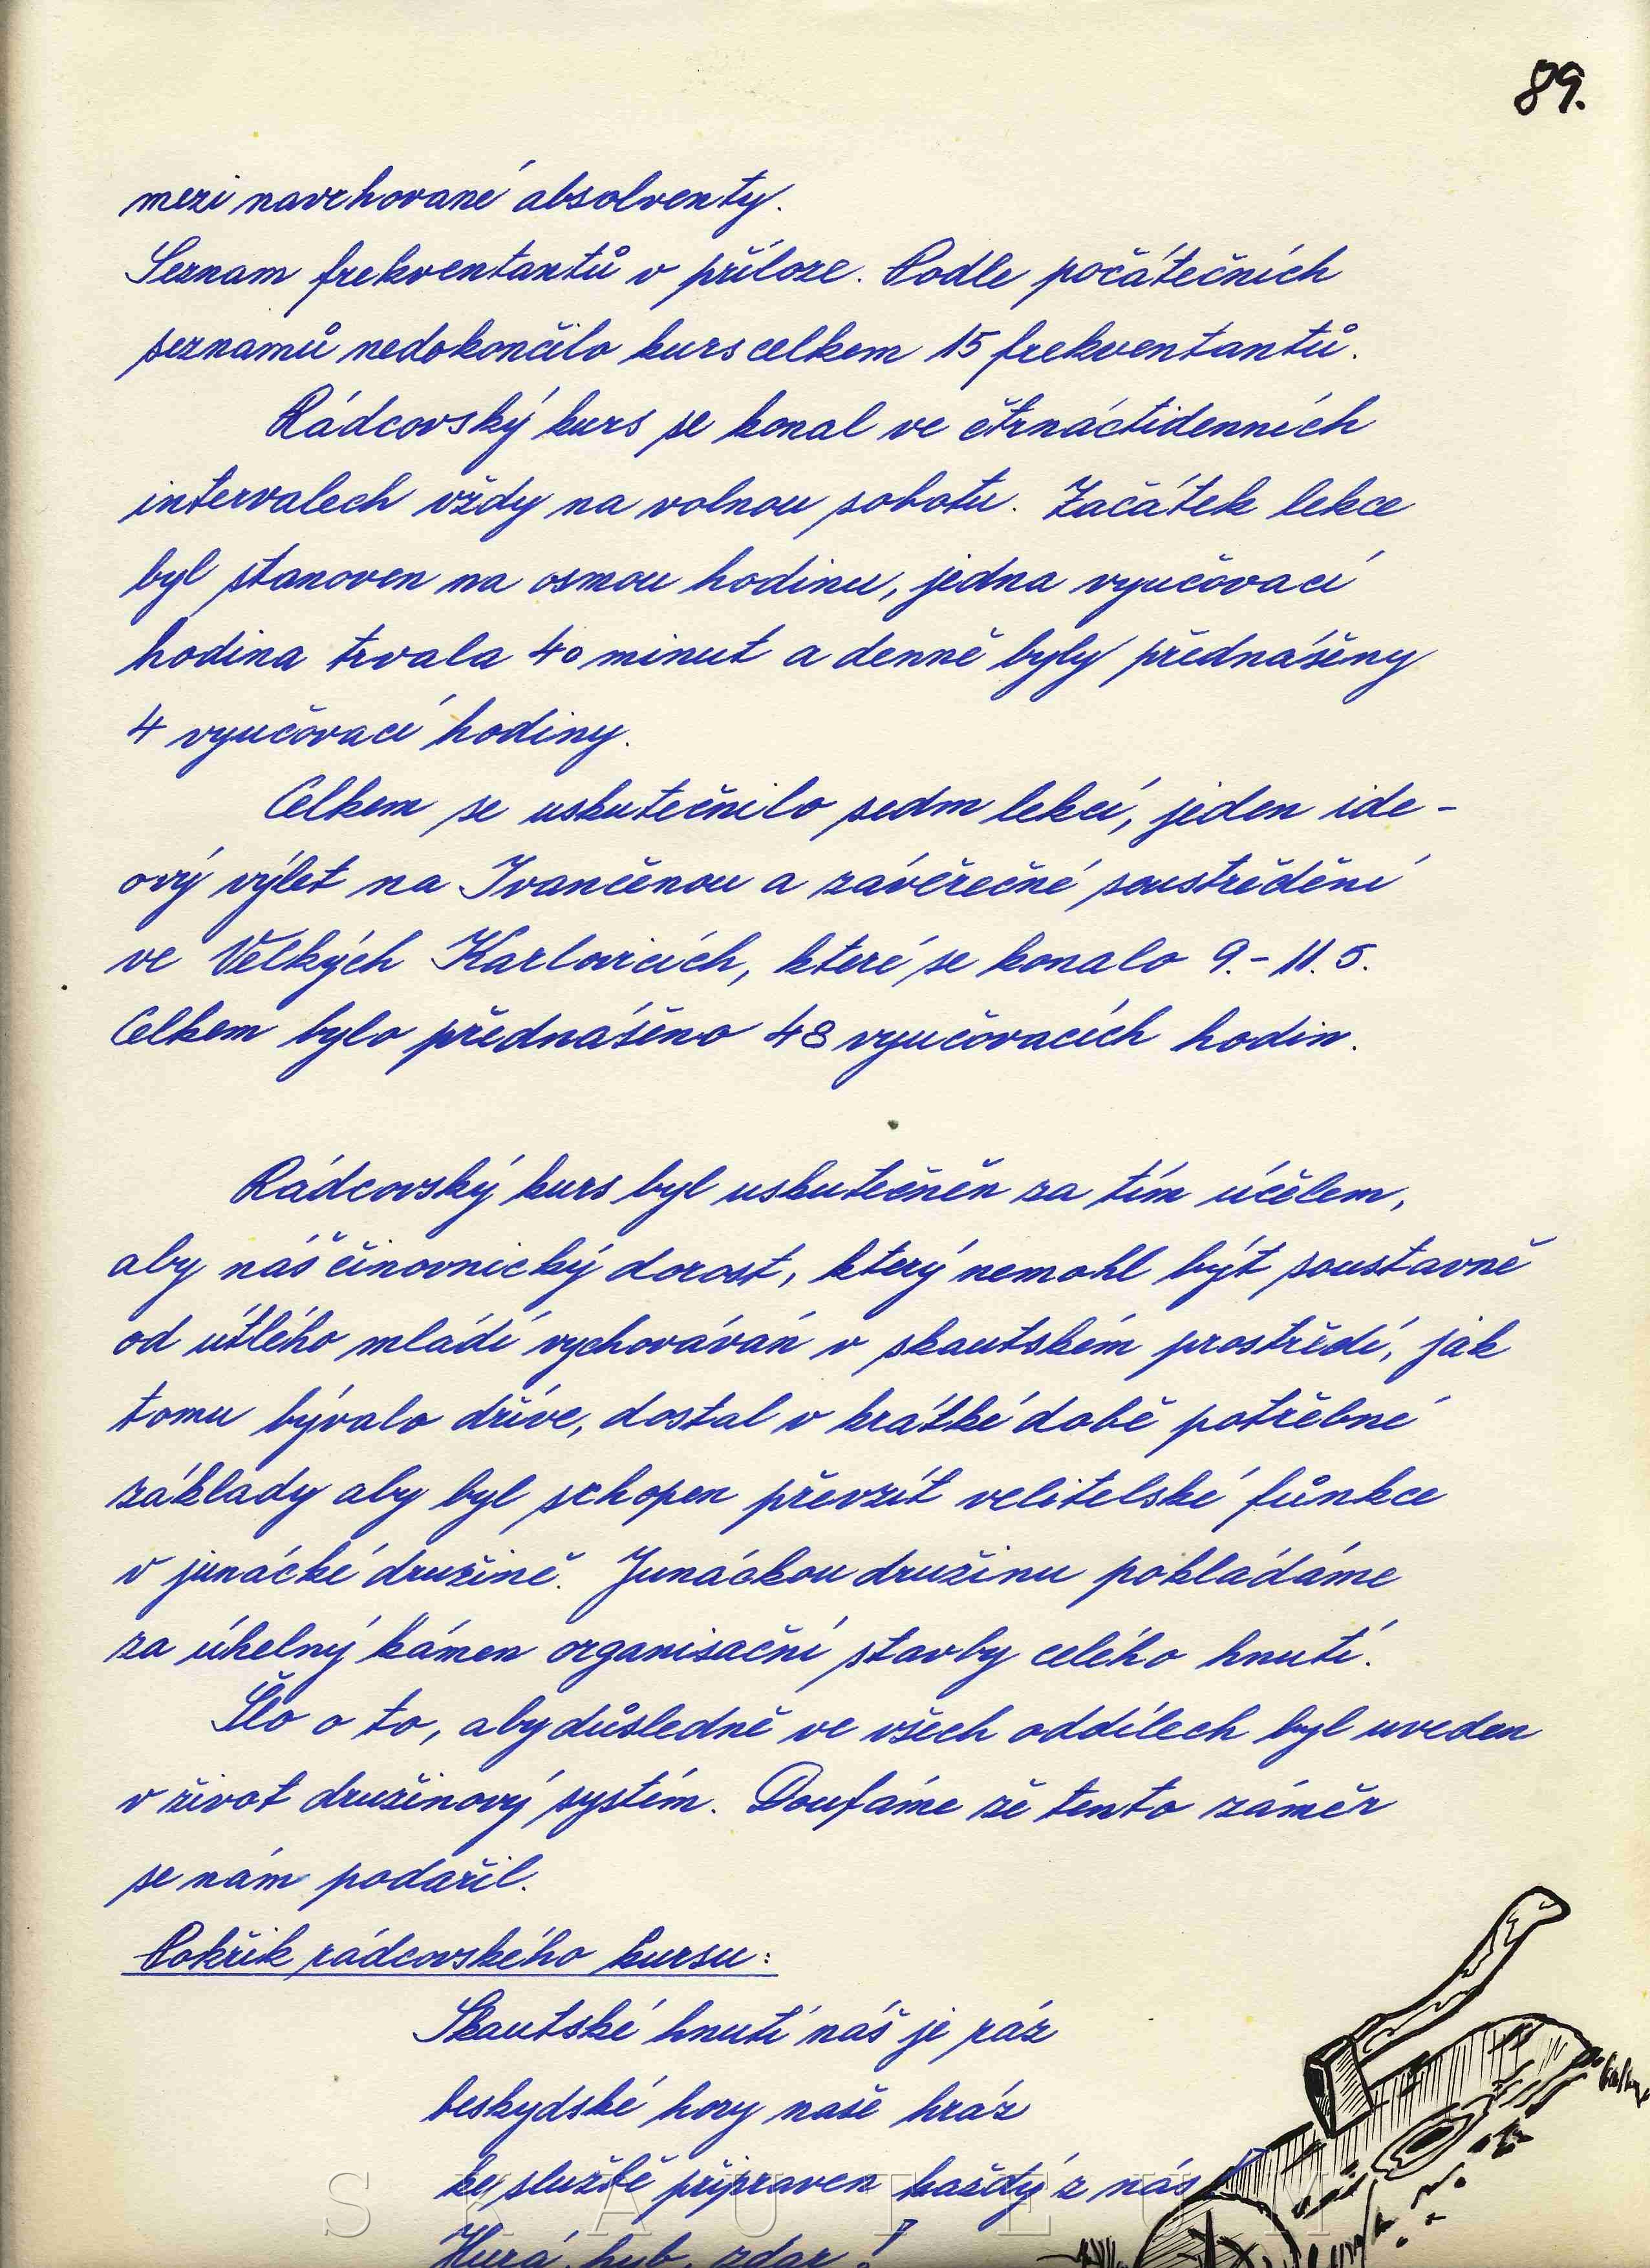 89.
mezi navrhované absolventy.
Seznam frekventantů v příloze. Podle počátečních
seznamů nedokončilo kurs celkem 15 frekventantů.
Rádcovský kurs se konal ve čtrnáctidenních
intervalech vždy na volnou sobotu. Začátek lekce
byl stanoven na osmou hodinu, jedna vyučovací
hodina trvala 40 minut a denně byly přednášeny
4 vyučovací hodiny.
Celkem se uskutečnilo sedm lekcí, jeden ide-
ový výlet na Ivančenou a závěrečné soustředění
ve Velkých Karlovicích, které se konalo 9.-11.5.
Celkem bylo přednášeno 48 vyučovacích hodin.
Rádcovský kurs byl uskutečněn za tím účelem,
aby náš činovnický dorost, který nemohl být soustavně
od útlého mládí vychováván v skautském prostředí, jak
tomu bývalo dříve, dostal v krátké době potřebné
základy aby byl schopen převzít velitelské fůnkce
v junácké družině. Junáckou družinu pokládáme
za úhelný kámen organisační stavby celého hnutí.
Šlo o to, aby důsledně ve všech oddílech byl uveden
v život družinový systém. Doufáme že tento záměr
se nám podařil.
Pokřik rádcovského kursu:
Skautské hnutí náš je ráz
beskydské hory naše hráz
ke službě připraven každý z nás!
Hurá, hub, zdar!
SKAUTEUM